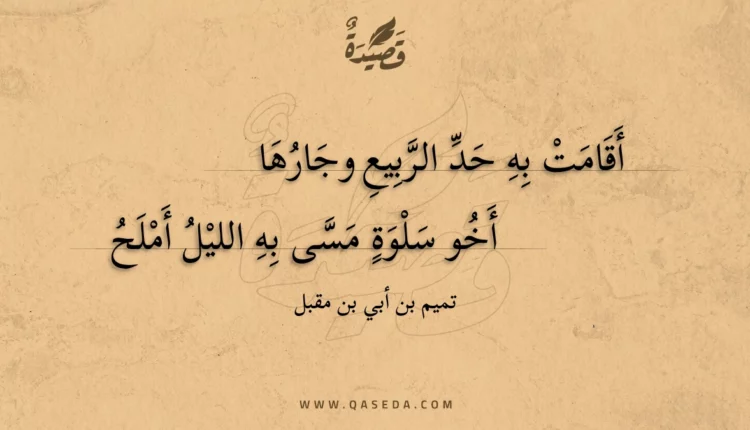 قَصِيدَةٌ
أَقَامَتْ بِهِ حَدِّ الرَّبِيعِ وجَارُهَا
أَخُو سَلْوَةٍ مَسَّى بِهِ الليْلُ أَمْلَحُ
تميم بن أبي بن مقبل
WWW.QASEDA.COM